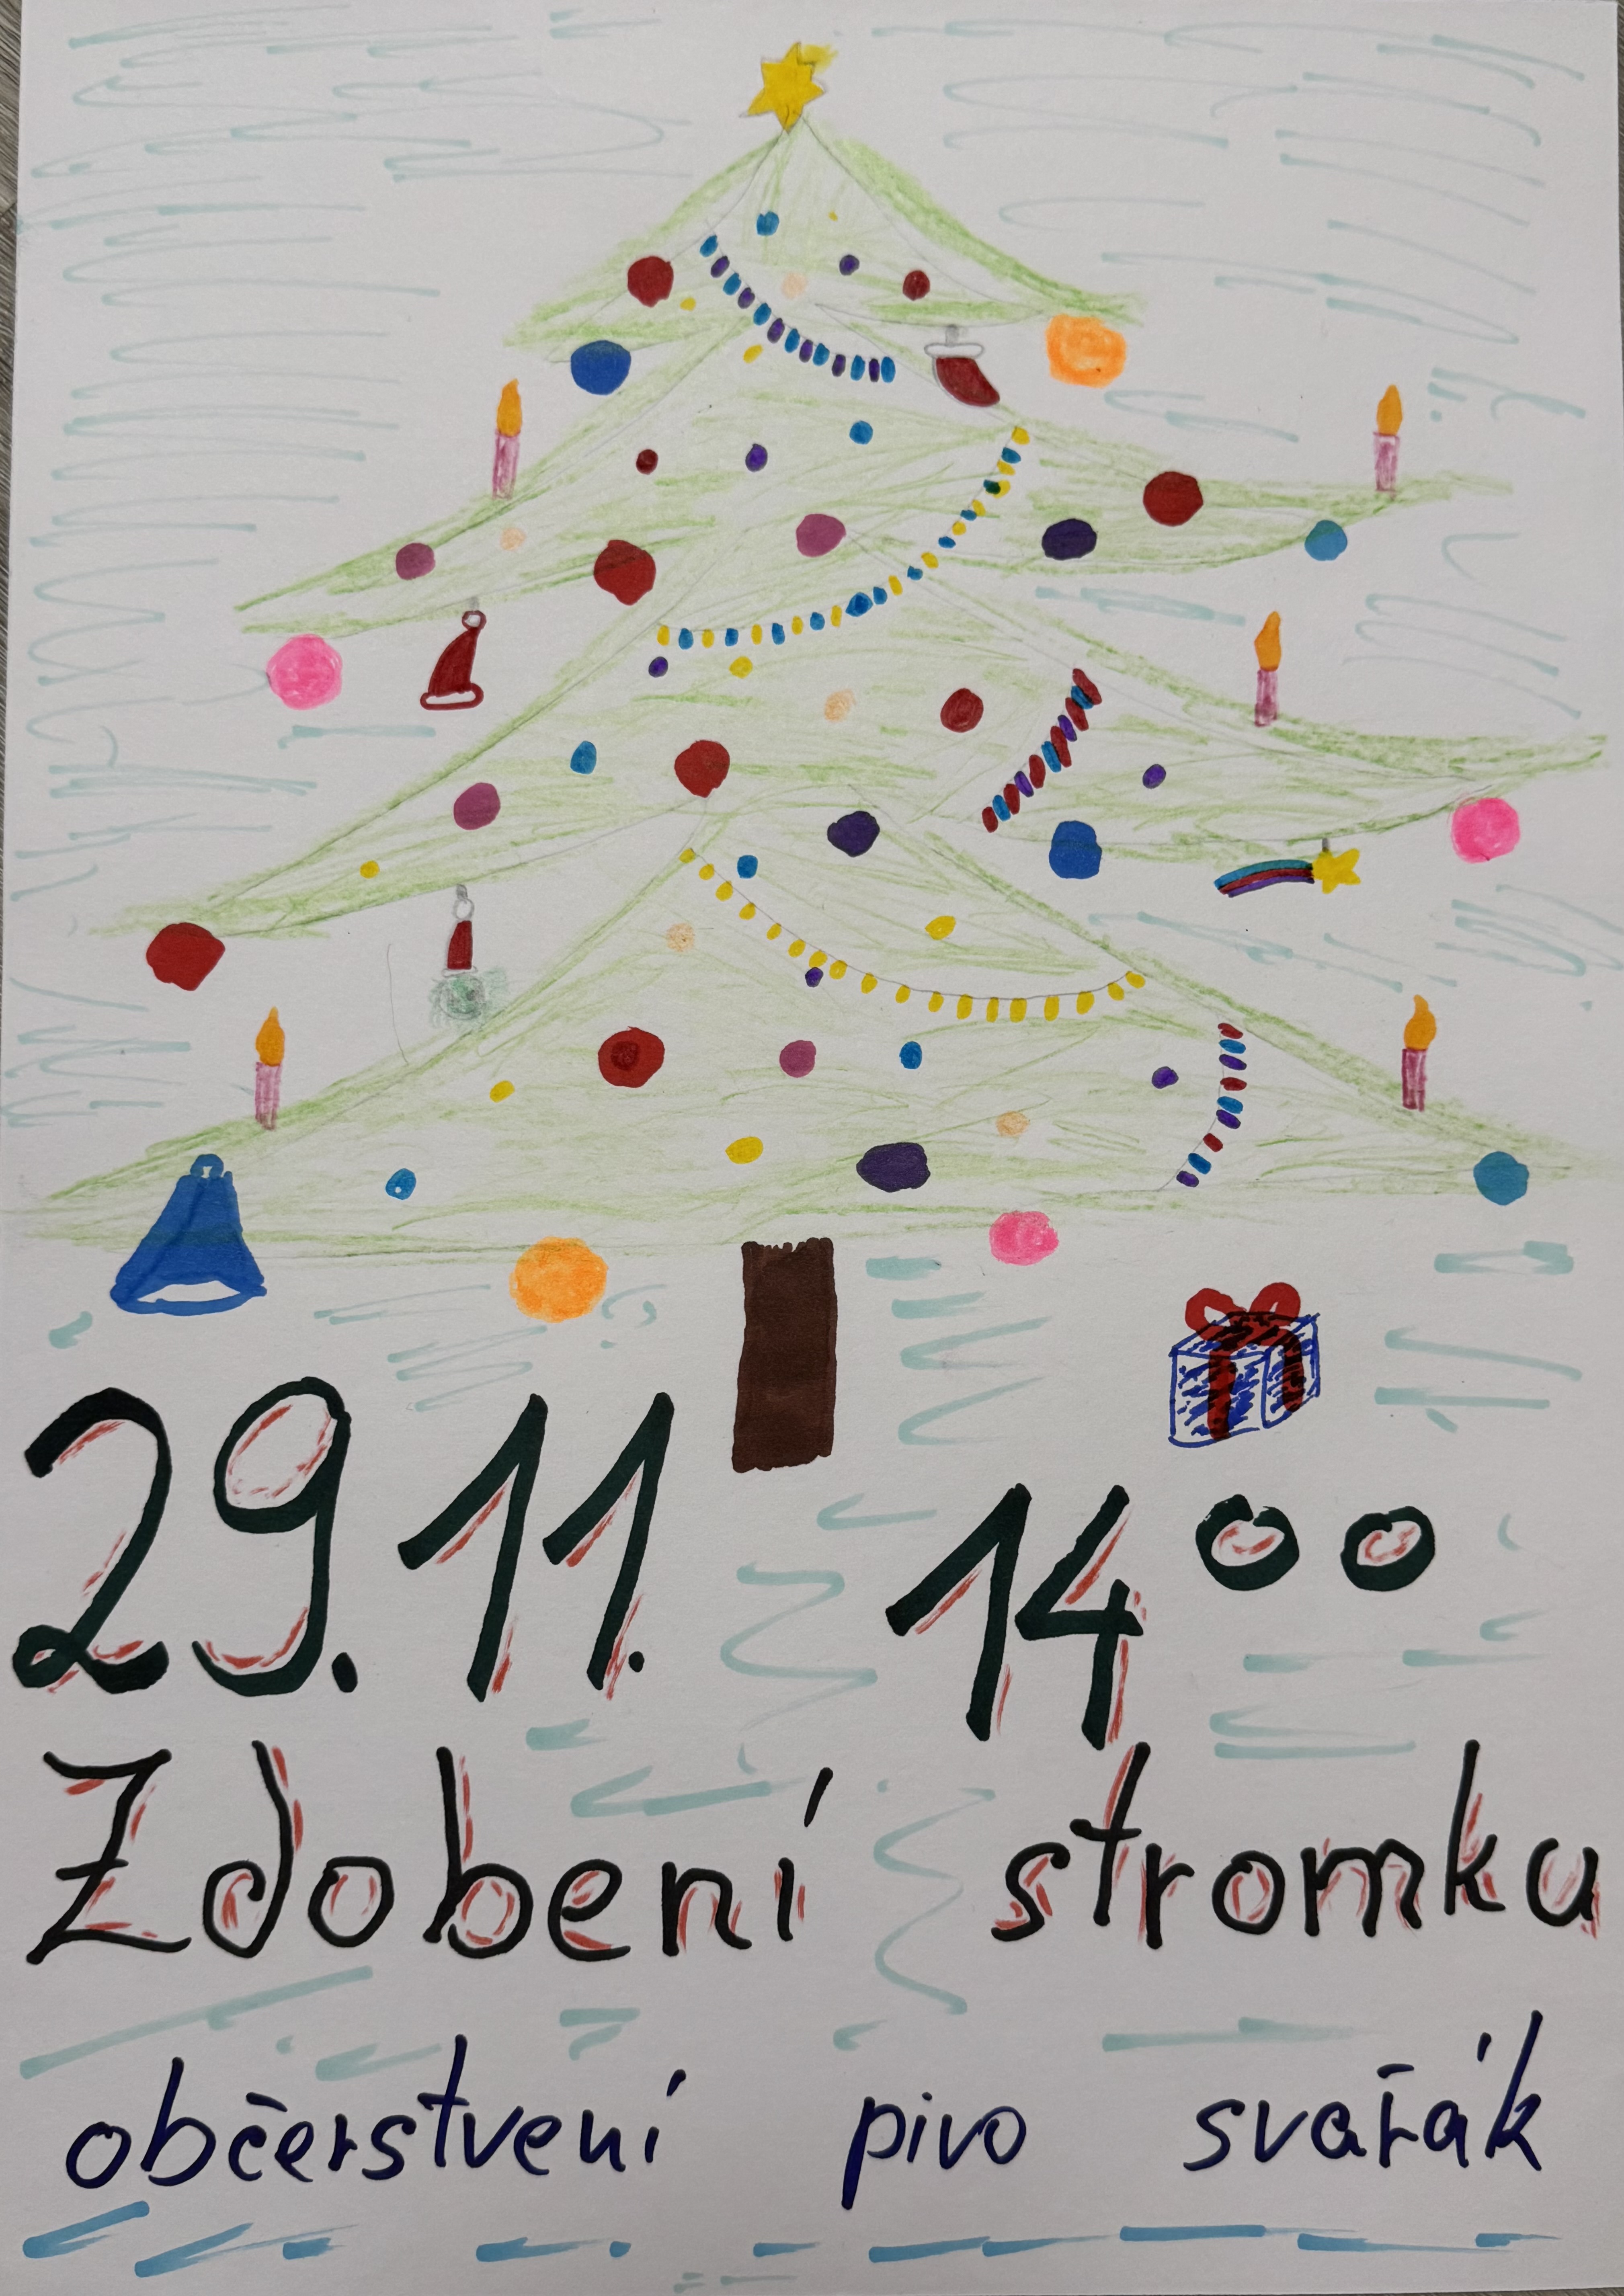 29. 11. 14⁰⁰
Zdobení stromku
občerstvení pivo svařák